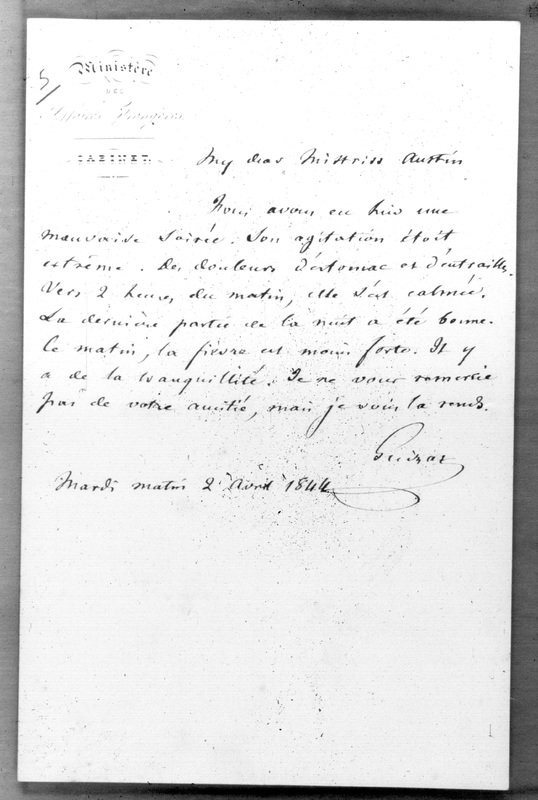 5/
Ministère
DES
Affaires Étrangères
CABINET.
My dear Mistriss Austin
Nous avons eu hier une
mauvaise soirée. Son agitation étoit
extrême. Des douleurs d'estomac et d'entrailles.
Vers 2 heures du matin, elle s'est calmée.
La dernière partie de la nuit a été bonne.
Ce matin, la fièvre est moins forte. Il y
a de la tranquillité. Je ne vous remercie
pas de votre amitié, mais je vous la rends.
Guizot
Mardi matin 2 Avril 1844